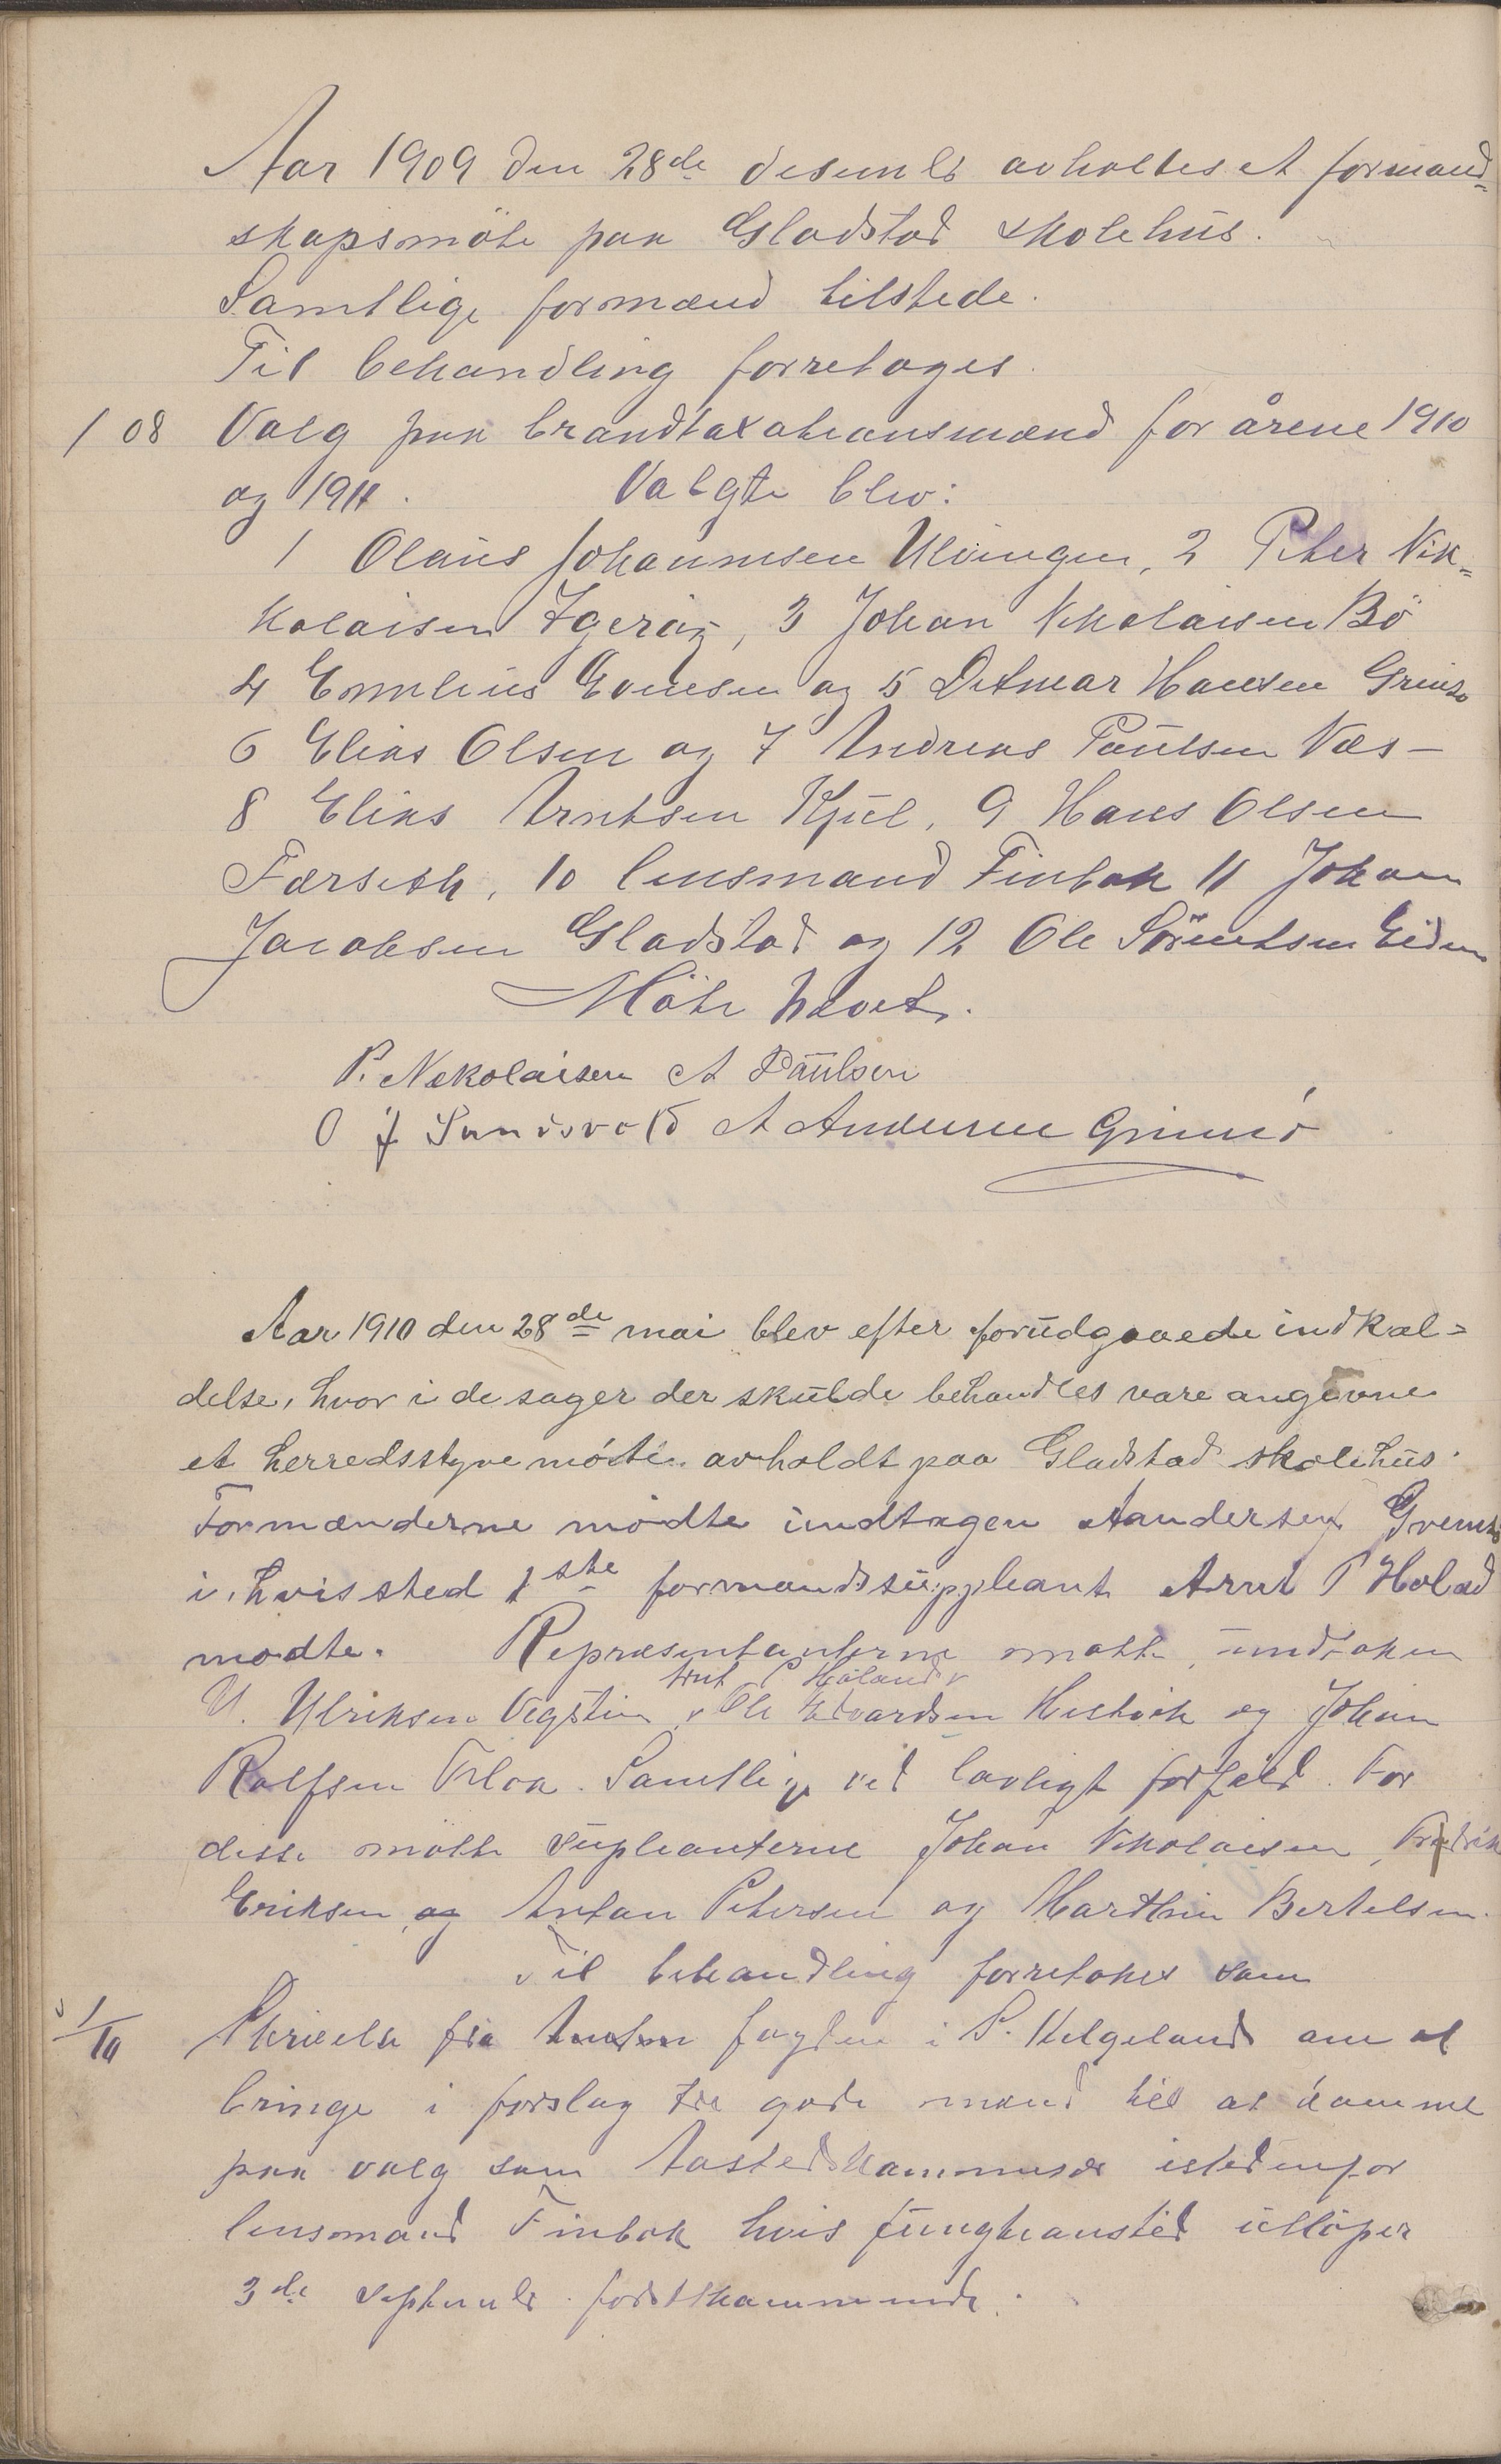 Aar 1909 den 28de desembr avholtes et formand=
skapsmöte paa Gladstad skolehus.
Samtlige formænd tilstede.
Til behandling forretoges.
1 08 Valg paa brandtaxationsmænd for årene 1910
og 1911. Valgte blev:
1 Olaus Johannesen Ulvingen, 2 Peter Nik=
kolaisen Igerøy, 3 Johan Nikolaisen Bö
4 Emelius Evensen og 5 Detmar Hansen Grimsö
6 Elias Olsen og 7 Andreas Paulsen Næs –
8 Elias Arntsen Kjul, 9 Hans Olsen
Færseth, 10 lensmand Finbak 11 Johan
Jacobsen Gladstad og 12 Ole Sörentsen Eidem
Möte hævet.
P. Nekolaisen A Paulsen
O J Sundsvold A Andersen Grimsö
Aar 1910 den 28de mai blev efter forudgaaede indkal=
delse, hvor i de sager der skulde behandles vare angivne
et herredsstyremöte avholdt paa Gladstad skolehus.
Formænderne mödte undtagen A Andersen Gremsö
i hvis sted 1ste formandssuppleant Arnt P Holand
mödte. Repræsentanterne mötte, undtaken
Arnt P Höland
U. Ulriksen Vegstein, Ole Edvardsen Hestvik og Johan
Rolfsen Floa. Samtlige ved lovligt forfald. For
disse mötte supleanterne Johan Nikolaisen, Fredrik
Eriksen og Antan Petersen og Marthin Bertelsen.
Til behandling forretokes sam
1/10 Skrivelse fra fogden i S. Helgeland om at
bringe i forslag tre gode mænd til at komme
paa valg som istedenfor
lensmand Finbak hvis funghanstid utlöper
3de septembr förstkommende.